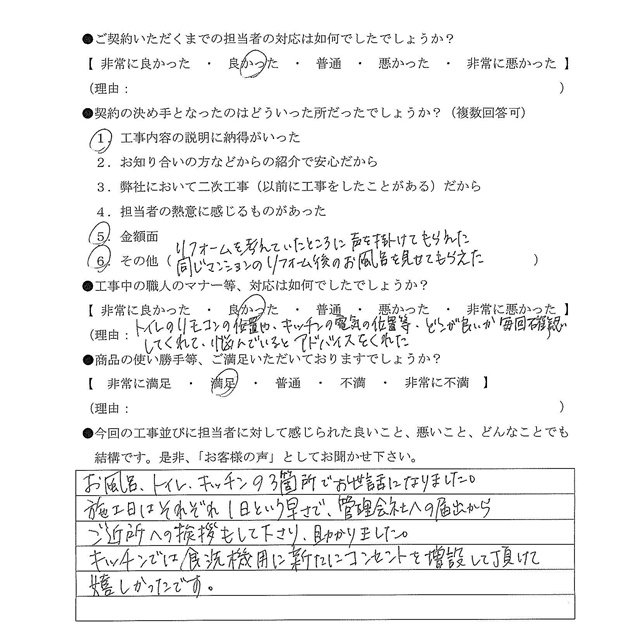 ●ご契約いただくまでの担当者の対応は如何でしたでしょうか？
【 非常に良かった ・ 良かった ・ 普通 ・ 悪かった ・ 非常に悪かった 】
（理由： ）
●契約の決め手となったのはどういった所だったでしょうか？（複数回答可）
１．工事内容の説明に納得がいった
２．お知り合いの方などからの紹介で安心だから
３．弊社において二次工事（以前に工事をしたことがある）だから
４．担当者の熱意に感じるものがあった
５．金額面
リフォームを考えていたところに声を掛けてもらえた
６．その他（ 同じマンションのリフォーム後のお風呂を見せてもらえた ）
●工事中の職人のマナー等、対応は如何でしたでしょうか？
【 非常に良かった ・ 良かった ・ 普通 ・ 悪かった ・ 非常に悪かった 】
（理由：トイレのリモコンの位置や、キッチンの電気の位置等、どちらが良いか毎回確認
してくれて、悩んでいるとアドバイスをくれた
●商品の使い勝手等、ご満足いただいておりますでしょうか？
【 非常に満足 ・ 満足 ・ 普通 ・ 不満 ・ 非常に不満 】
（理由： ）
●今回の工事並びに担当者に対して感じられた良いこと、悪いこと、どんなことでも
結構です。是非、「お客様の声」としてお聞かせ下さい。
お風呂、トイレ、キッチンの3箇所でお世話になりました。
施工日はそれぞれ1日という早さで、管理会社への届出から
ご近所への挨拶もして下さり、助かりました。
キッチンでは食洗機用に新たにコンセントを増設して頂けて
嬉しかったです。